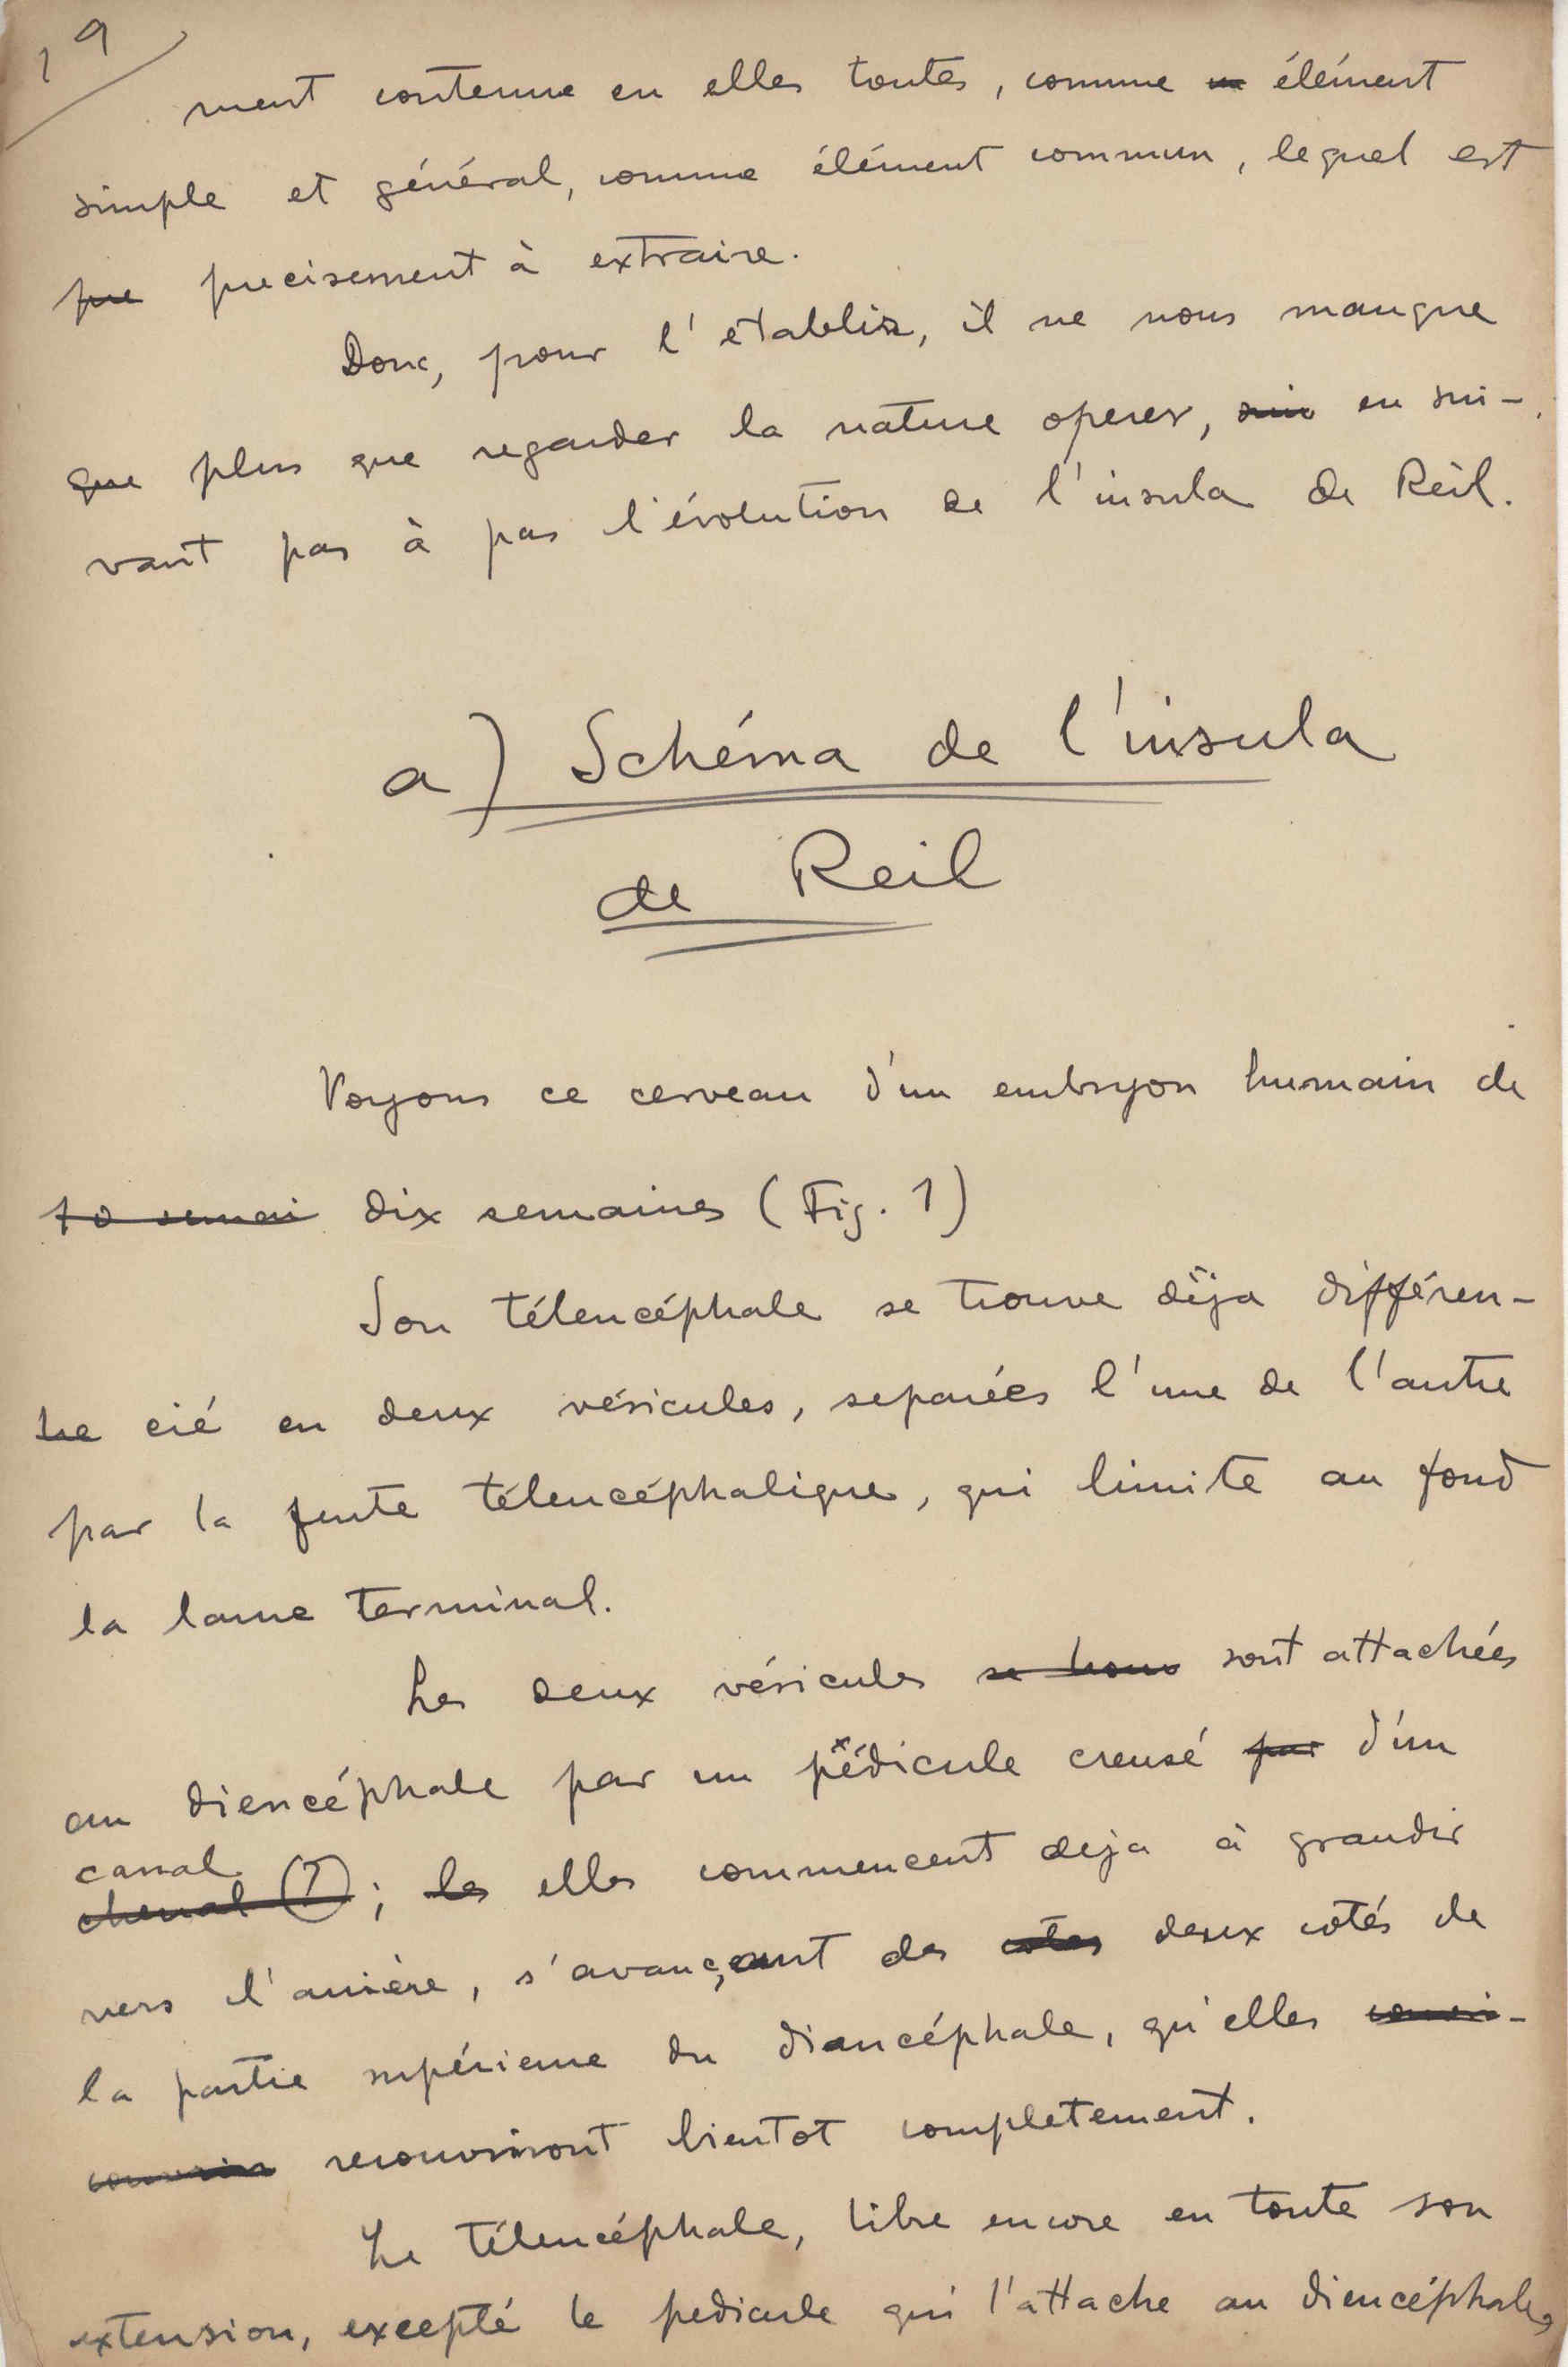 19
ment contenue en elles toutes, comme élément
simple et général, comme élément commun, lequel est
pre precisement à extraire.
Donc, pour l'etablir, il ne nous manque
que plus que regarder la nature operer, sui en sui-
vant pas à pas l'évolution de l'insula de Reil.
a) Schéma de l'insula
de Reil
Voyons ce cerveau d'un embryon humain de
10 semai dix semaines (Fig. 1)
Son télencéphale se trouve déja différen-
cié en deux vésicules, separées l'une de l'autre
par la fente télencéphalique, qui limite au fond
la lame terminal.
Les deux vésicules se trouv sont attachées
au diencéphale par un pédicule creusé par d'un
canal
chenal (?); les elles commencent deja à grandir
vers l'arrière, s'avançant des cotes deux cotés de
la partie supérieure du diancéphale, qu'elles couvri-
couvrir recouvriront bientot completement.
Le télencéphale, libre encore en toute son
extension, excepté le pedicule qui l'attache au diencéphale,